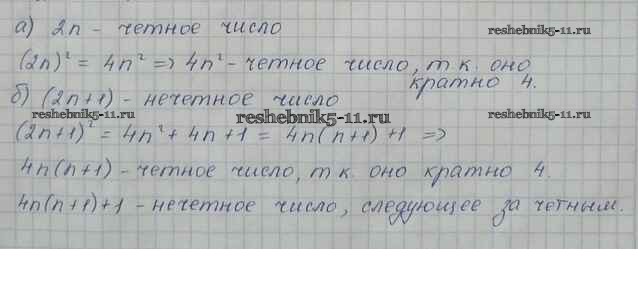 а) 2n - четное число
reshebnik5-11.ru
(2n)² = 4n² => 4n² - четное число, т к. оно
кратно 4.
б) (2n+1) - нечетное число
reshebnik5-11.ru
reshebnik5-11.ru
reshebnik5-11.ru
(2n+1)² = 4n² + 4n + 1 = 4n(n+1) + 1 =>
4n(n+1) - четное число, т к. оно кратно 4.
4n(n+1)+1 - нечетное число, следующее за четным.